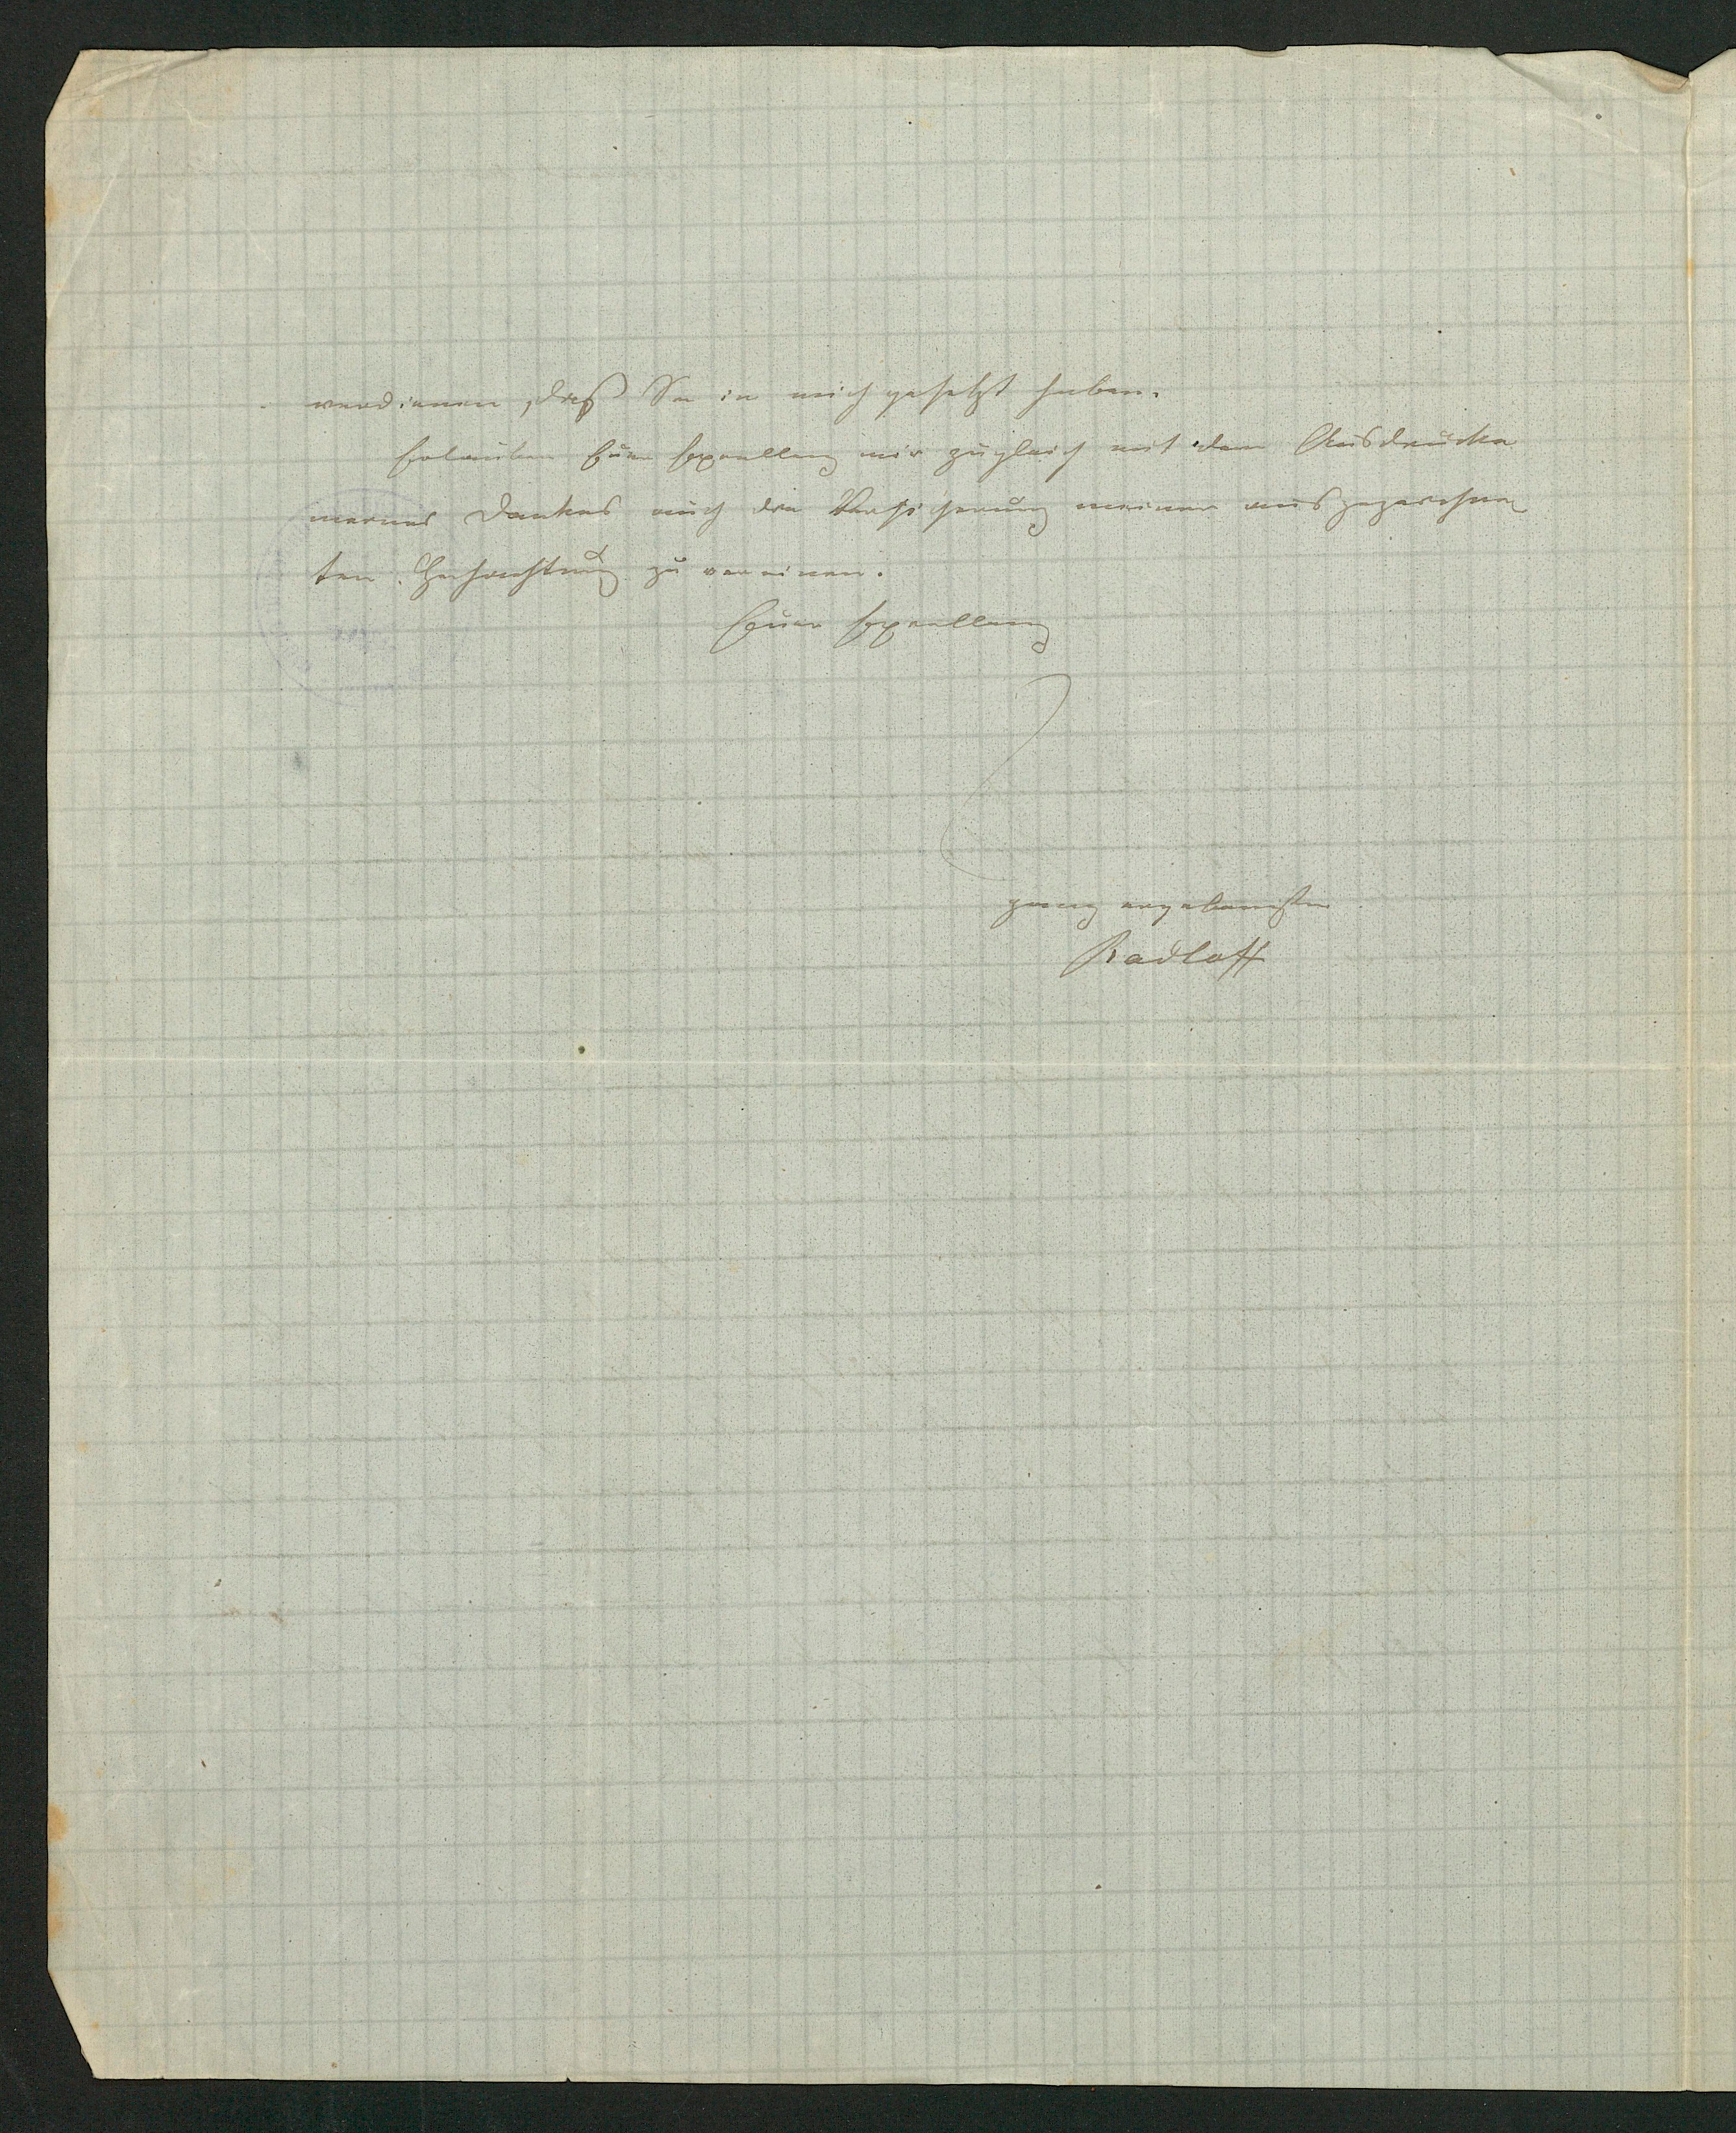 verdienen, daß Sie in mich gesetzt haben.
Erlauben Euer Excellenz mir zugleich mit dem Ausdrucke
meines Dankes auch die Versicherung meiner ausgezeichne
ten Hochachtung zu vereinen.
Euer Excellenz
ganz ergebenster
Radloff